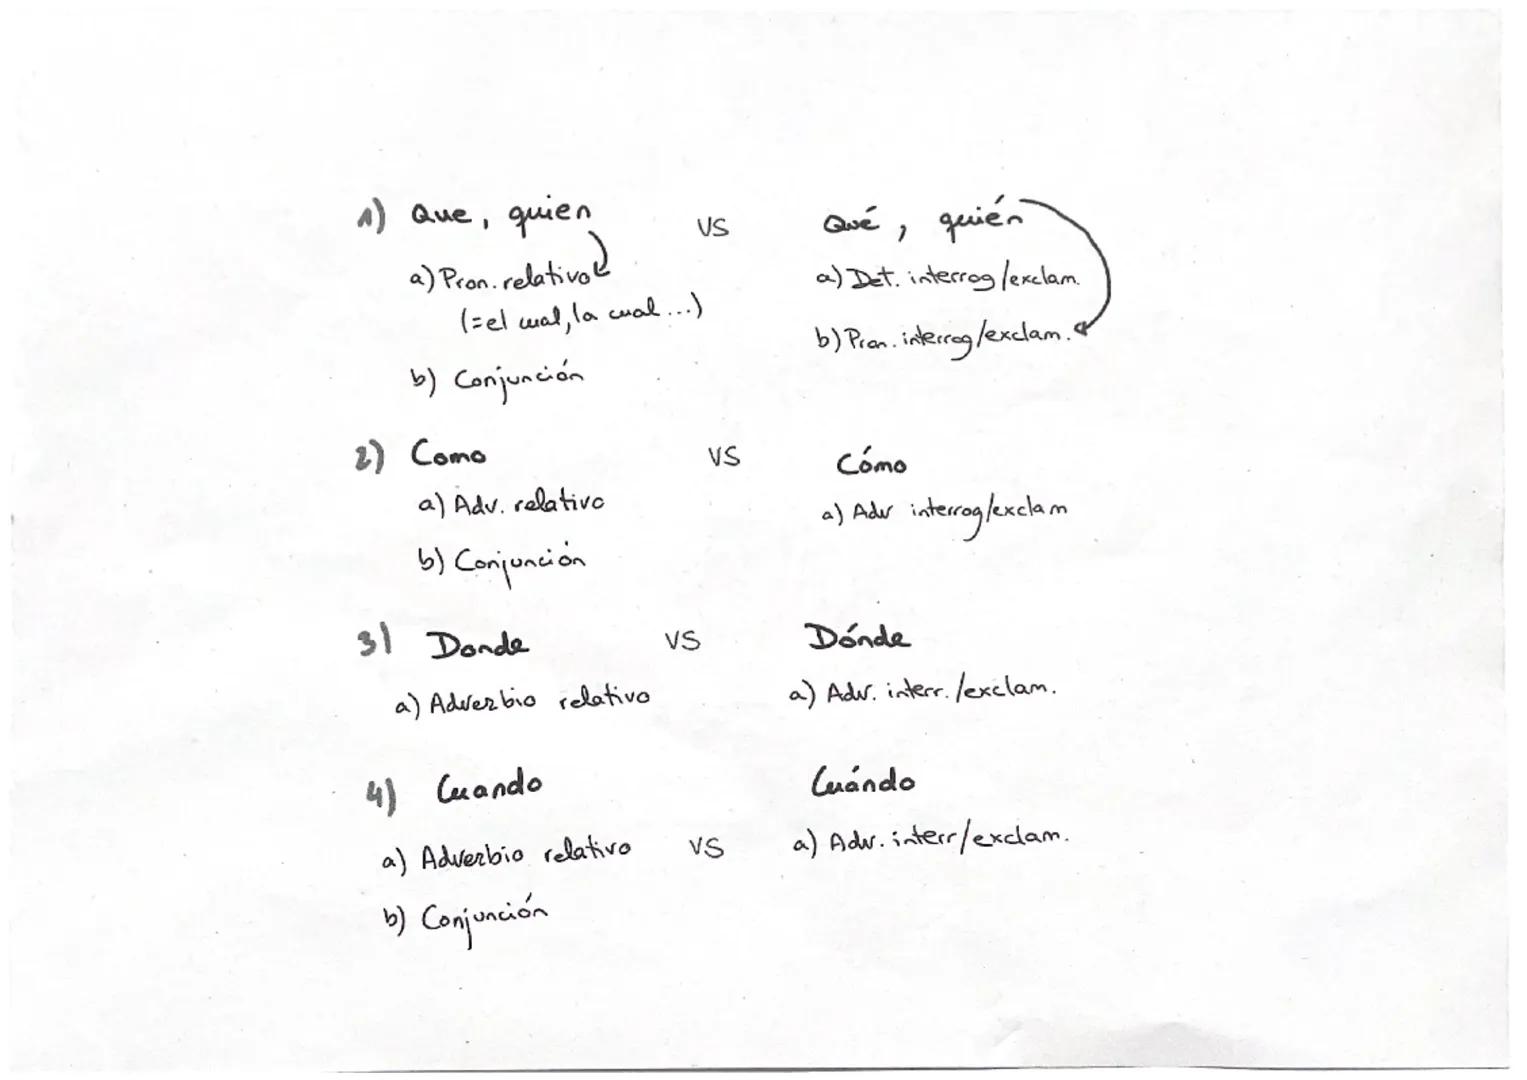 1) Que, quien vs Qué, quién
a) Pron. relativo a) Det. interrog/exclam.
(=el cual, la cual...)
b) Pron. interrog/exclam.
b) Conjunción
2) Como vs Cómo
a) Adv. relativo a) Adv interrog/exclam
b) Conjunción
3) Donde vs Dónde
a) Adverbio relativo a) Adv. interr./exclam.
4) Cuando Cuándo
a) Adverbio relativo vs a) Adv. interr/exclam.
b) Conjunción